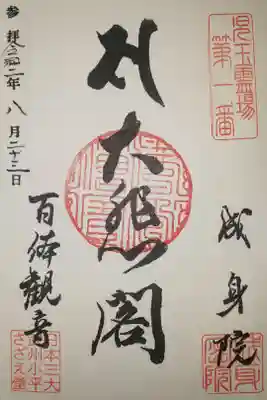 児玉靈場
第一番
成身院
大悲閣
参拝令和二年八月二十三日
百体觀音
日本三大
州小平
さざえ堂